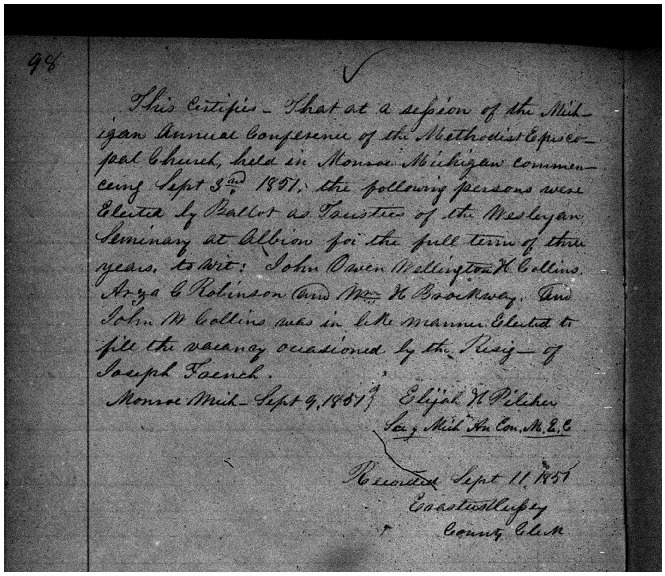 98
This Certifies — That at a session of the Mich-
igan Annual Conference of the Methodist Episco-
pal Church, held in Monroe Michigan commen-
cing Sept 3rd 1851, the following persons were
Elected by Ballot as Trustees of the Wesleyan
Seminary at Albion for the full term of three
years, to wit: John Owen Wellington H Collins.
Arza C Robinson and Wm H Brockway. And
John W Collins was in like manner Elected to
fill the vacancy occasioned by the Resig— of
Joseph French.
Monroe Mich— Sept 9, 1851 } Elijah H Pilcher
Secy Mich An Con. M. E. C
Recorded Sept 11, 1851
Erastus Hussey
County Clerk